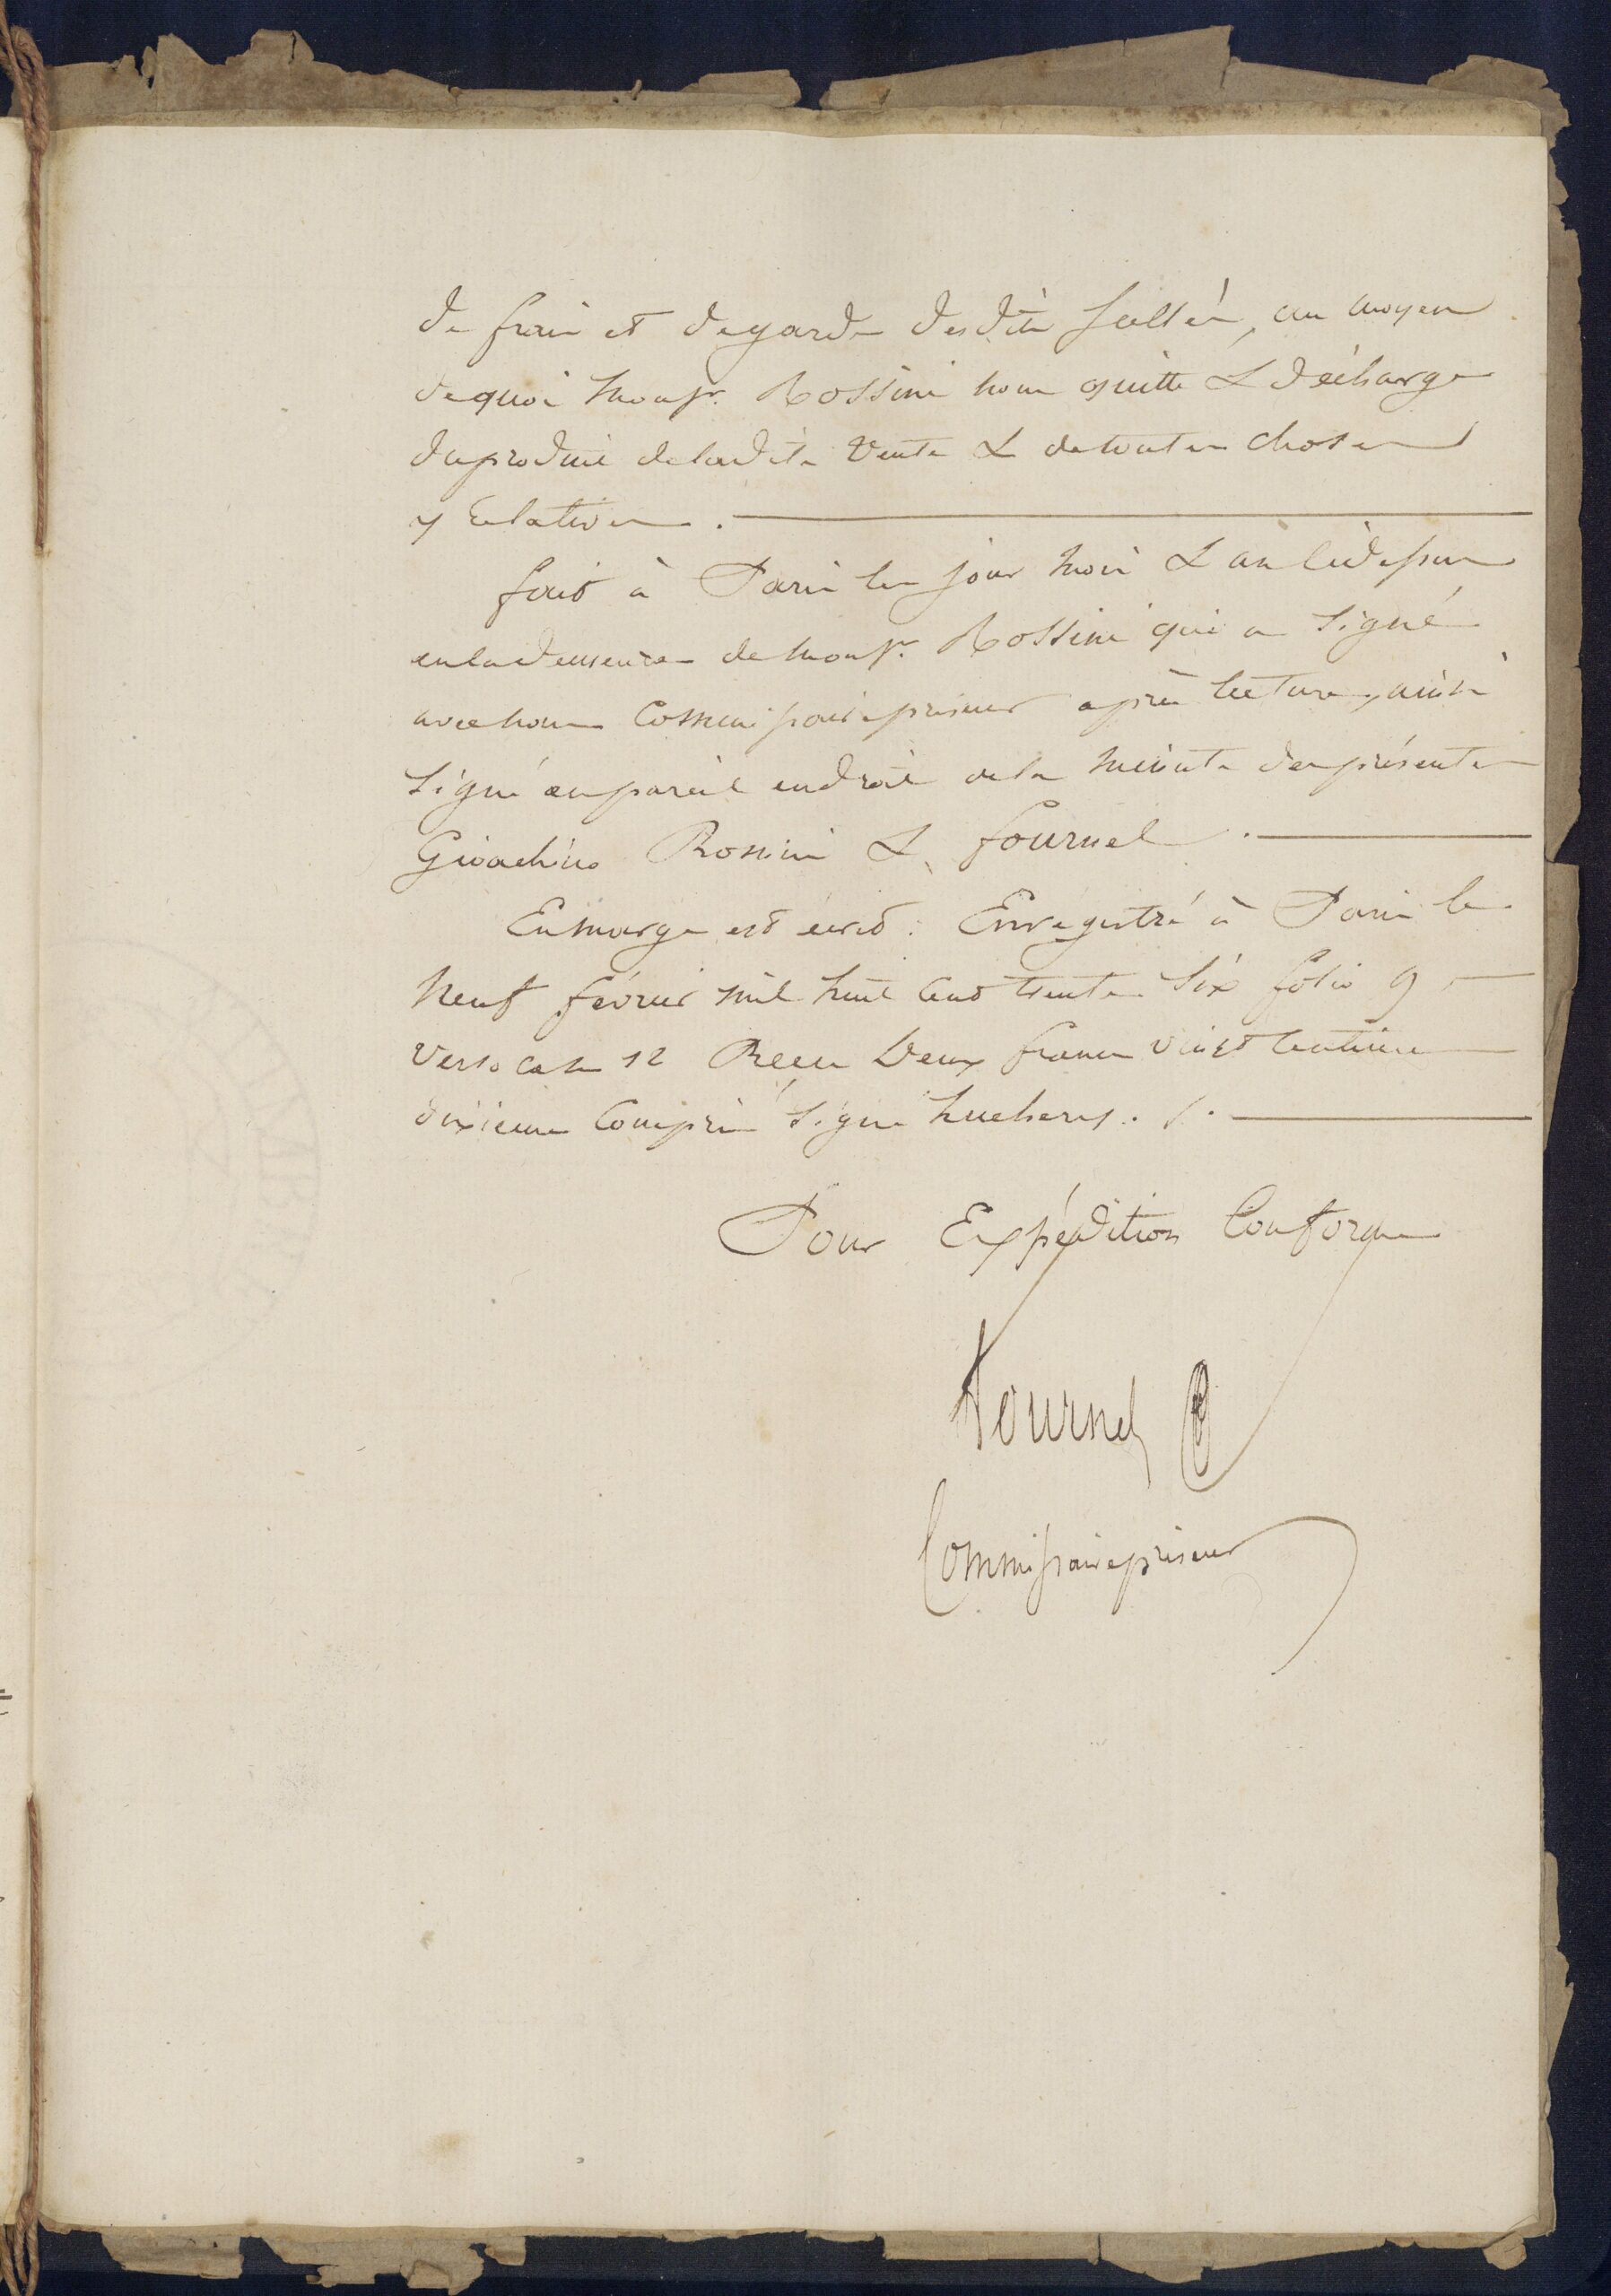 de frais et de garde desdits scellés, au moyen
de quoi Monsr. Rossini nous quitte & décharge
du produit de ladite Vente & de toutes choses
y relatives.
fait à Paris les jour mois & an susdits
en la demeure de Monsr. Rossini qui a signé
avec nous Commissaire priseur après lecture, ainsi
signé en pareil endroit de la minute des présentes
Gioachino Rossini & fournel.
En marge est écrit : Enregistré à Paris le
neuf février mil huit cent trente six folio 9
verso case 12 Reçu Deux francs vingt centimes
dixième compris signé
Pour Expédition Conforme
Fournel
Commissaire priseur